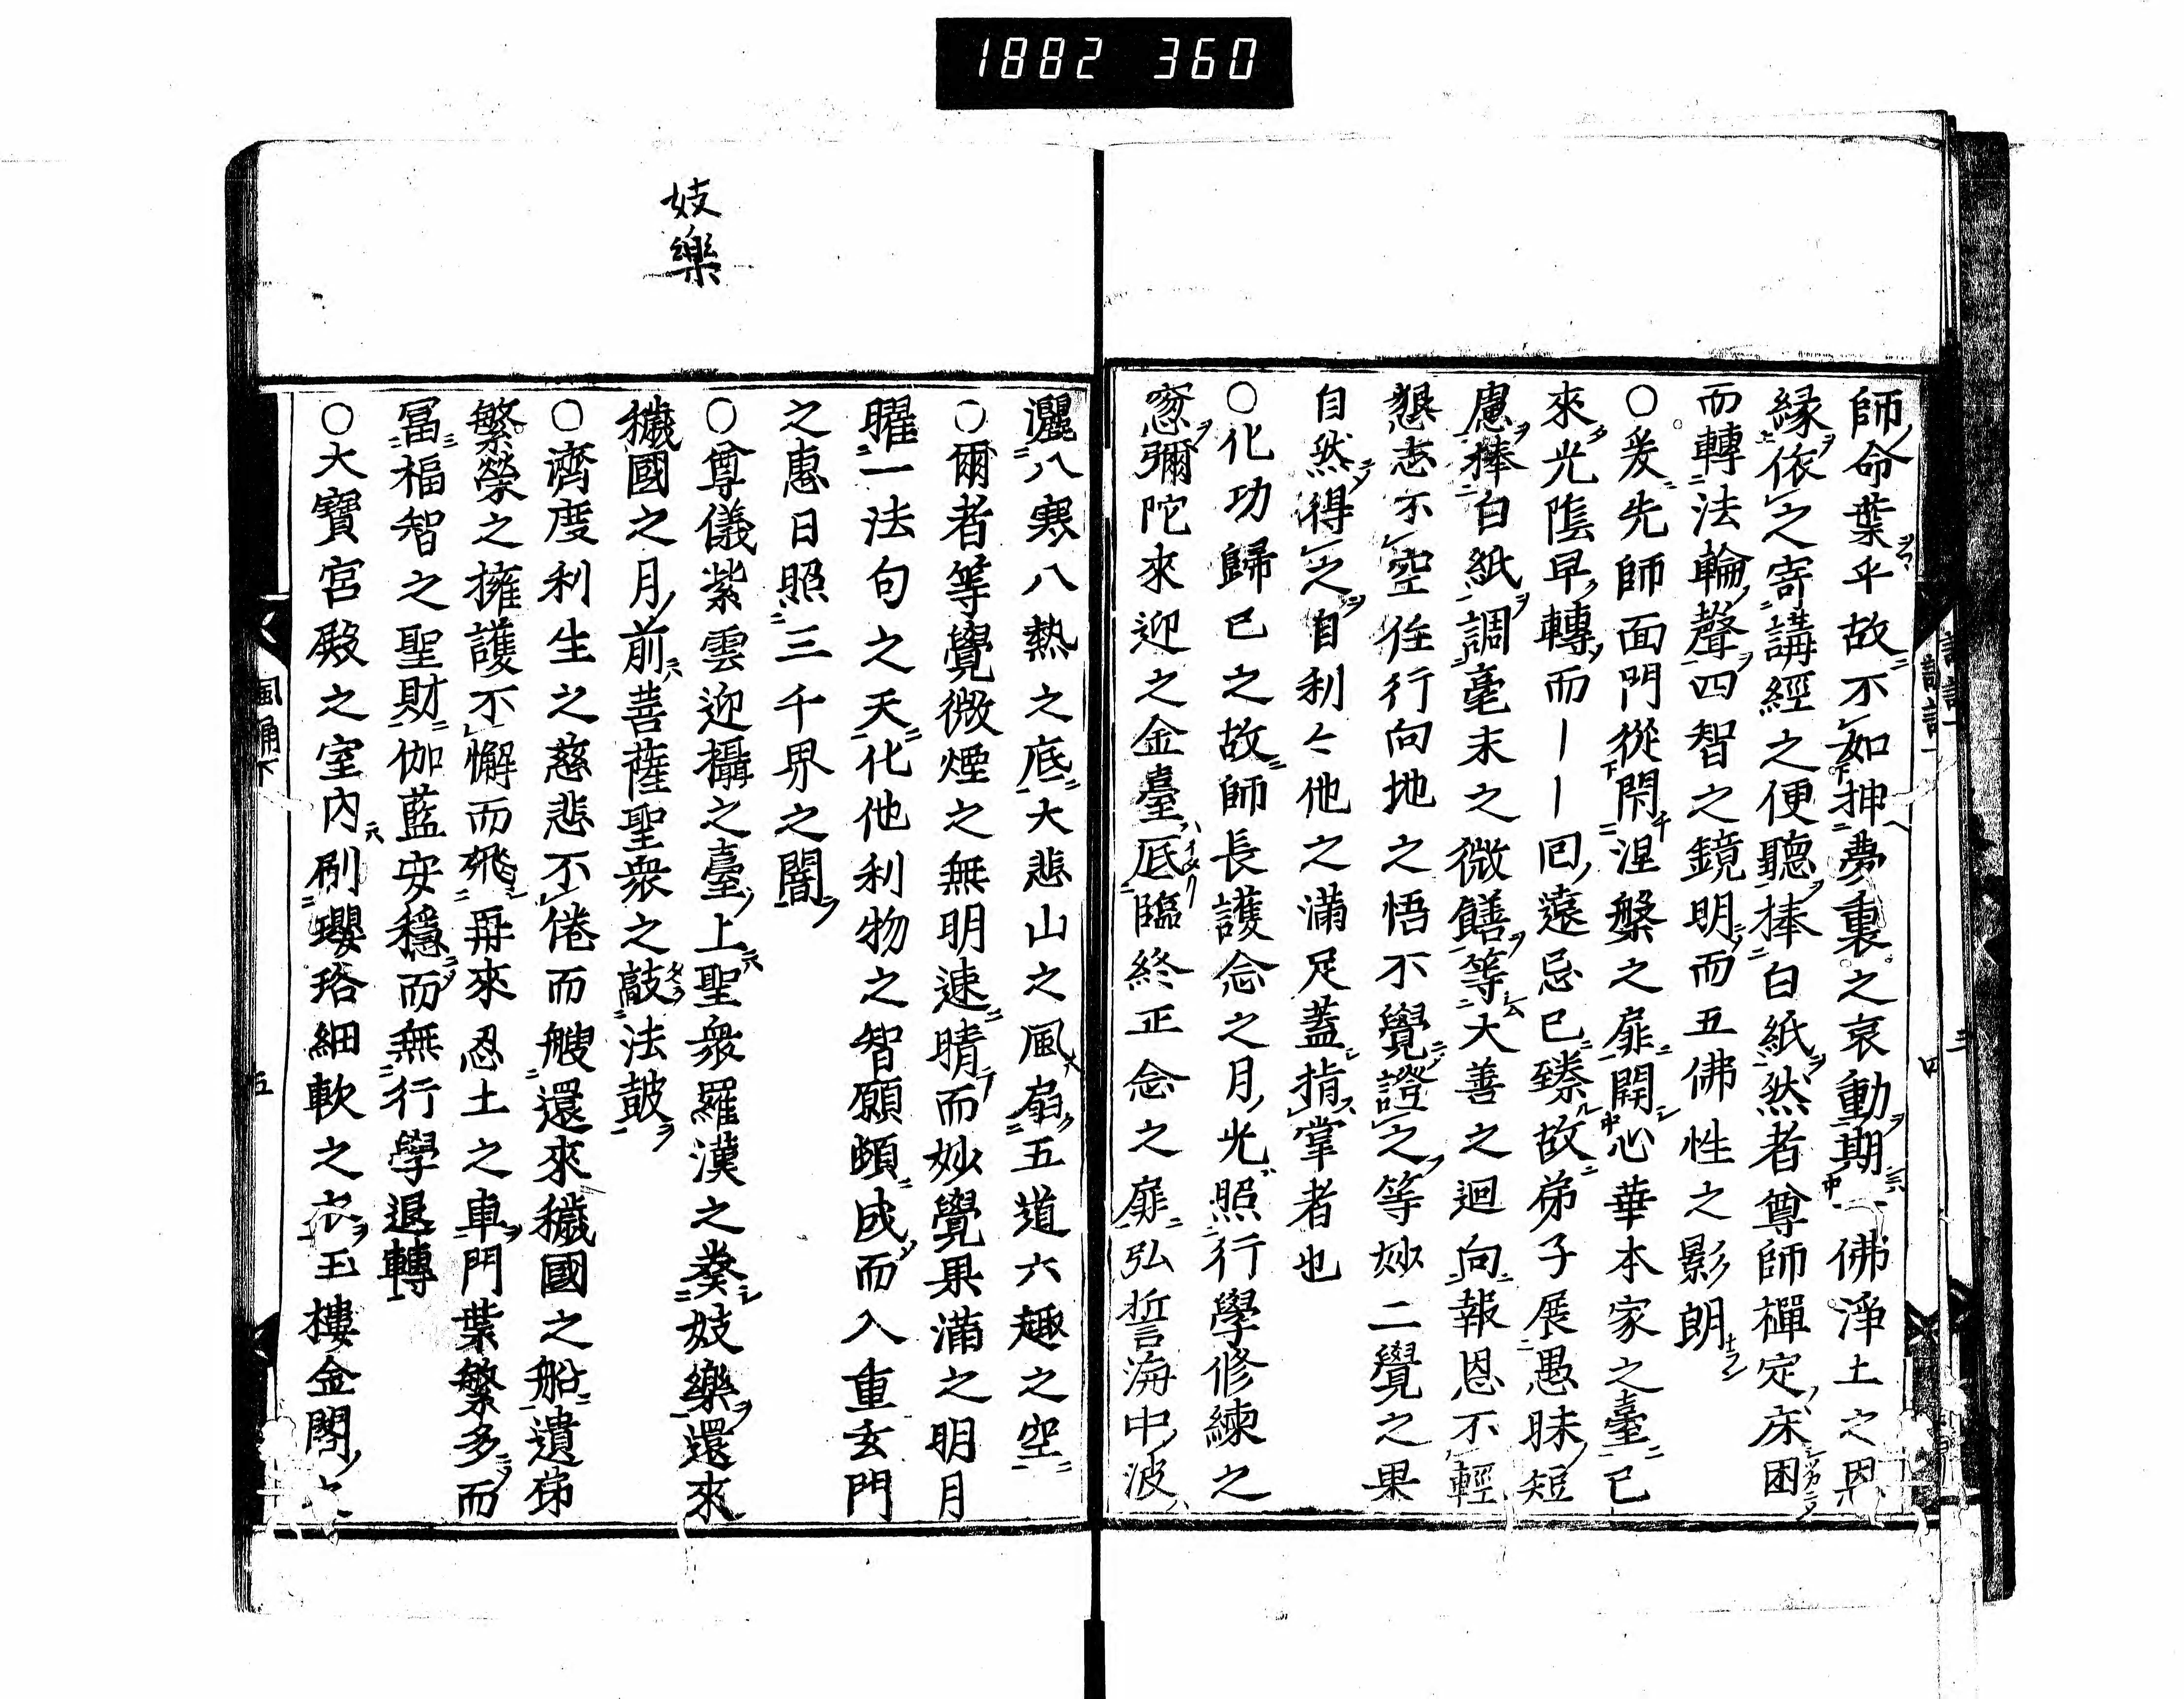 1882 360
師命葉乎故不如抻夢裏之哀動期一佛淨土之恩
縁依之寄講經之便聽捧白紙然者尊師禪定床困
而轉法輪聲四智之鏡明而五佛性之影朗
○爰先師面門從閇涅槃之扉開心華本家之臺已
來光陰早轉而ーー回遠忌已臻故弟子展愚昧短
慮捧白紙調毫末之微饍等大善之迴向報恩不輕
懇志不空徃行向地之悟不覺證之等妙二覺之果
自然得之自利々他之滿足蓋指掌者也
○化功歸已之故師長護念之月光照行學修練之
窓彌陀來迎之金臺厎臨終正念之扉弘誓海中波
灑八寒八熱之底大悲山之風扇五道六趣之空
○爾者等覺微煙之無明速晴而妙覺果滿之明月
曜一法句之天化他利物之智願頗成而入重玄門
之惠日照三千界之闇
○尊儀紫雲迎攝之臺上聖衆羅漢之奏妓樂還來
穢國之月前菩薩聖衆之敲法鼓
○濟度利生之慈悲不倦而艘還來穢國之船遺弟
繁榮之擁護不懈而飛再來忍土之車門葉繁多而
冨福智之聖財伽藍安穩而無行學退轉
○大寶宮殿之室内刷瓔珞細軟之衣玉樓金閣之
妓樂